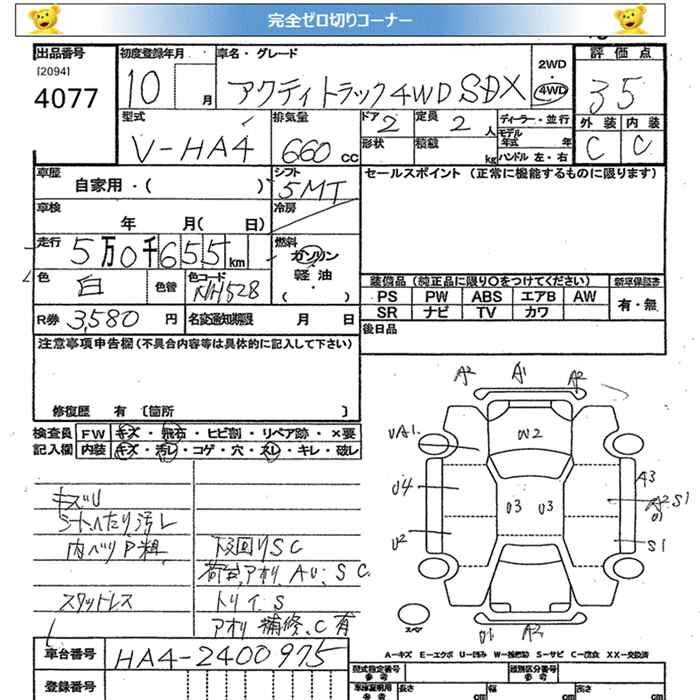 完全ゼロ切りコーナー
出品番号 初度登録年月 車名・グレード 評価点
[2094] 2WD
4077 10 月 アクティトラック4WD SDX 4WD 35
型式 排気量 ドア 2 定員 2 人 ディーラー・並行 外装 内装
モデル年式 年
V-HA4 660 cc 形状 積載 kg ハンドル 左・右 C C
車歴 シフト セールスポイント (正常に機能するものに限ります)
自家用・( ) 5MT
車検 冷房
年 月( 日)
走行 5万0千655km 燃料
ガソリン
色 白 色替 色コード NH528 軽油
( )
装備品(純正品に限り○をつけてください) 新車保証書
PS PW ABS エアB AW 有・無
SR ナビ TV カワ
R券 3,580 円 名変通知期限 月 日
後日品
注意事項申告欄(不具合内容等は具体的に記入して下さい)
修復歴 有 [箇所 ]
検査員 FW キズ・飛石・ヒビ割・リペア跡・×要
記入欄 内装 キズ・汚レ・コゲ・穴・スレ・キレ・破レ
A2 A1 A2
UA1. W2
U4 U3 U3 A3
A2 S1
U1
U2 S1
キズU
シートへたり汚レ
内ヘリP粗 下回りSC
荷台,アオリ,AU,SC
スタッドレス トリイ,S
アオリ補修,C有
スペア
U1 A2
A-キズ E-エクボ U-凹み W-補修跡 S-サビ C-腐食 XX-交換済
車台番号 HA4-2400975 型式指定番号 類別区分番号
参考 参考
登録番号 車庫証明用 長さ 幅 高さ
参考 cm cm cm